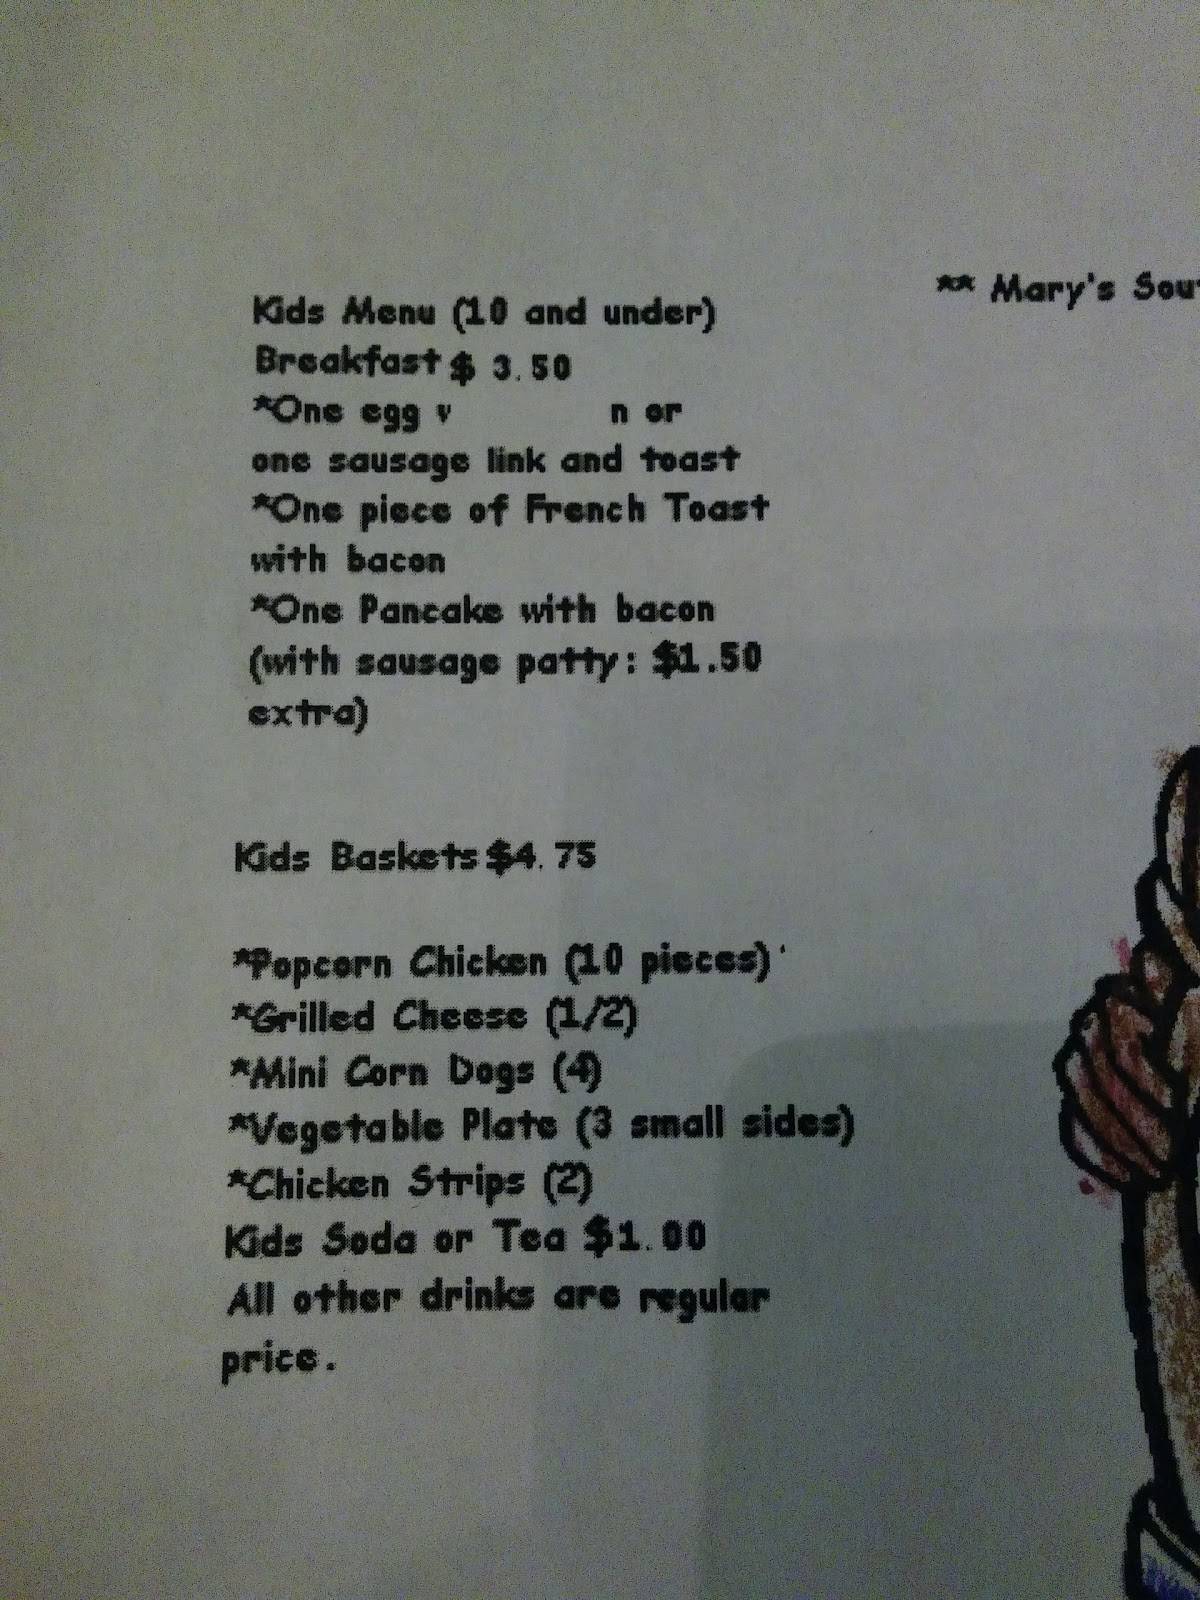 Kids Menu (10 and under)
Breakfast $ 3.50
*One egg or
one sausage link and toast
*One piece of French Toast
with bacon
*One Pancake with bacon
(with sausage patty: $1.50
extra)
Kids Baskets $4.75
*Popcorn Chicken (10 pieces)
*Grilled Cheese (1/2)
*Mini Corn Dogs (4)
*Vegetable Plate (3 small sides)
*Chicken Strips (2)
Kids Soda or Tea $1.00
All other drinks are regular
price.
** Mary's